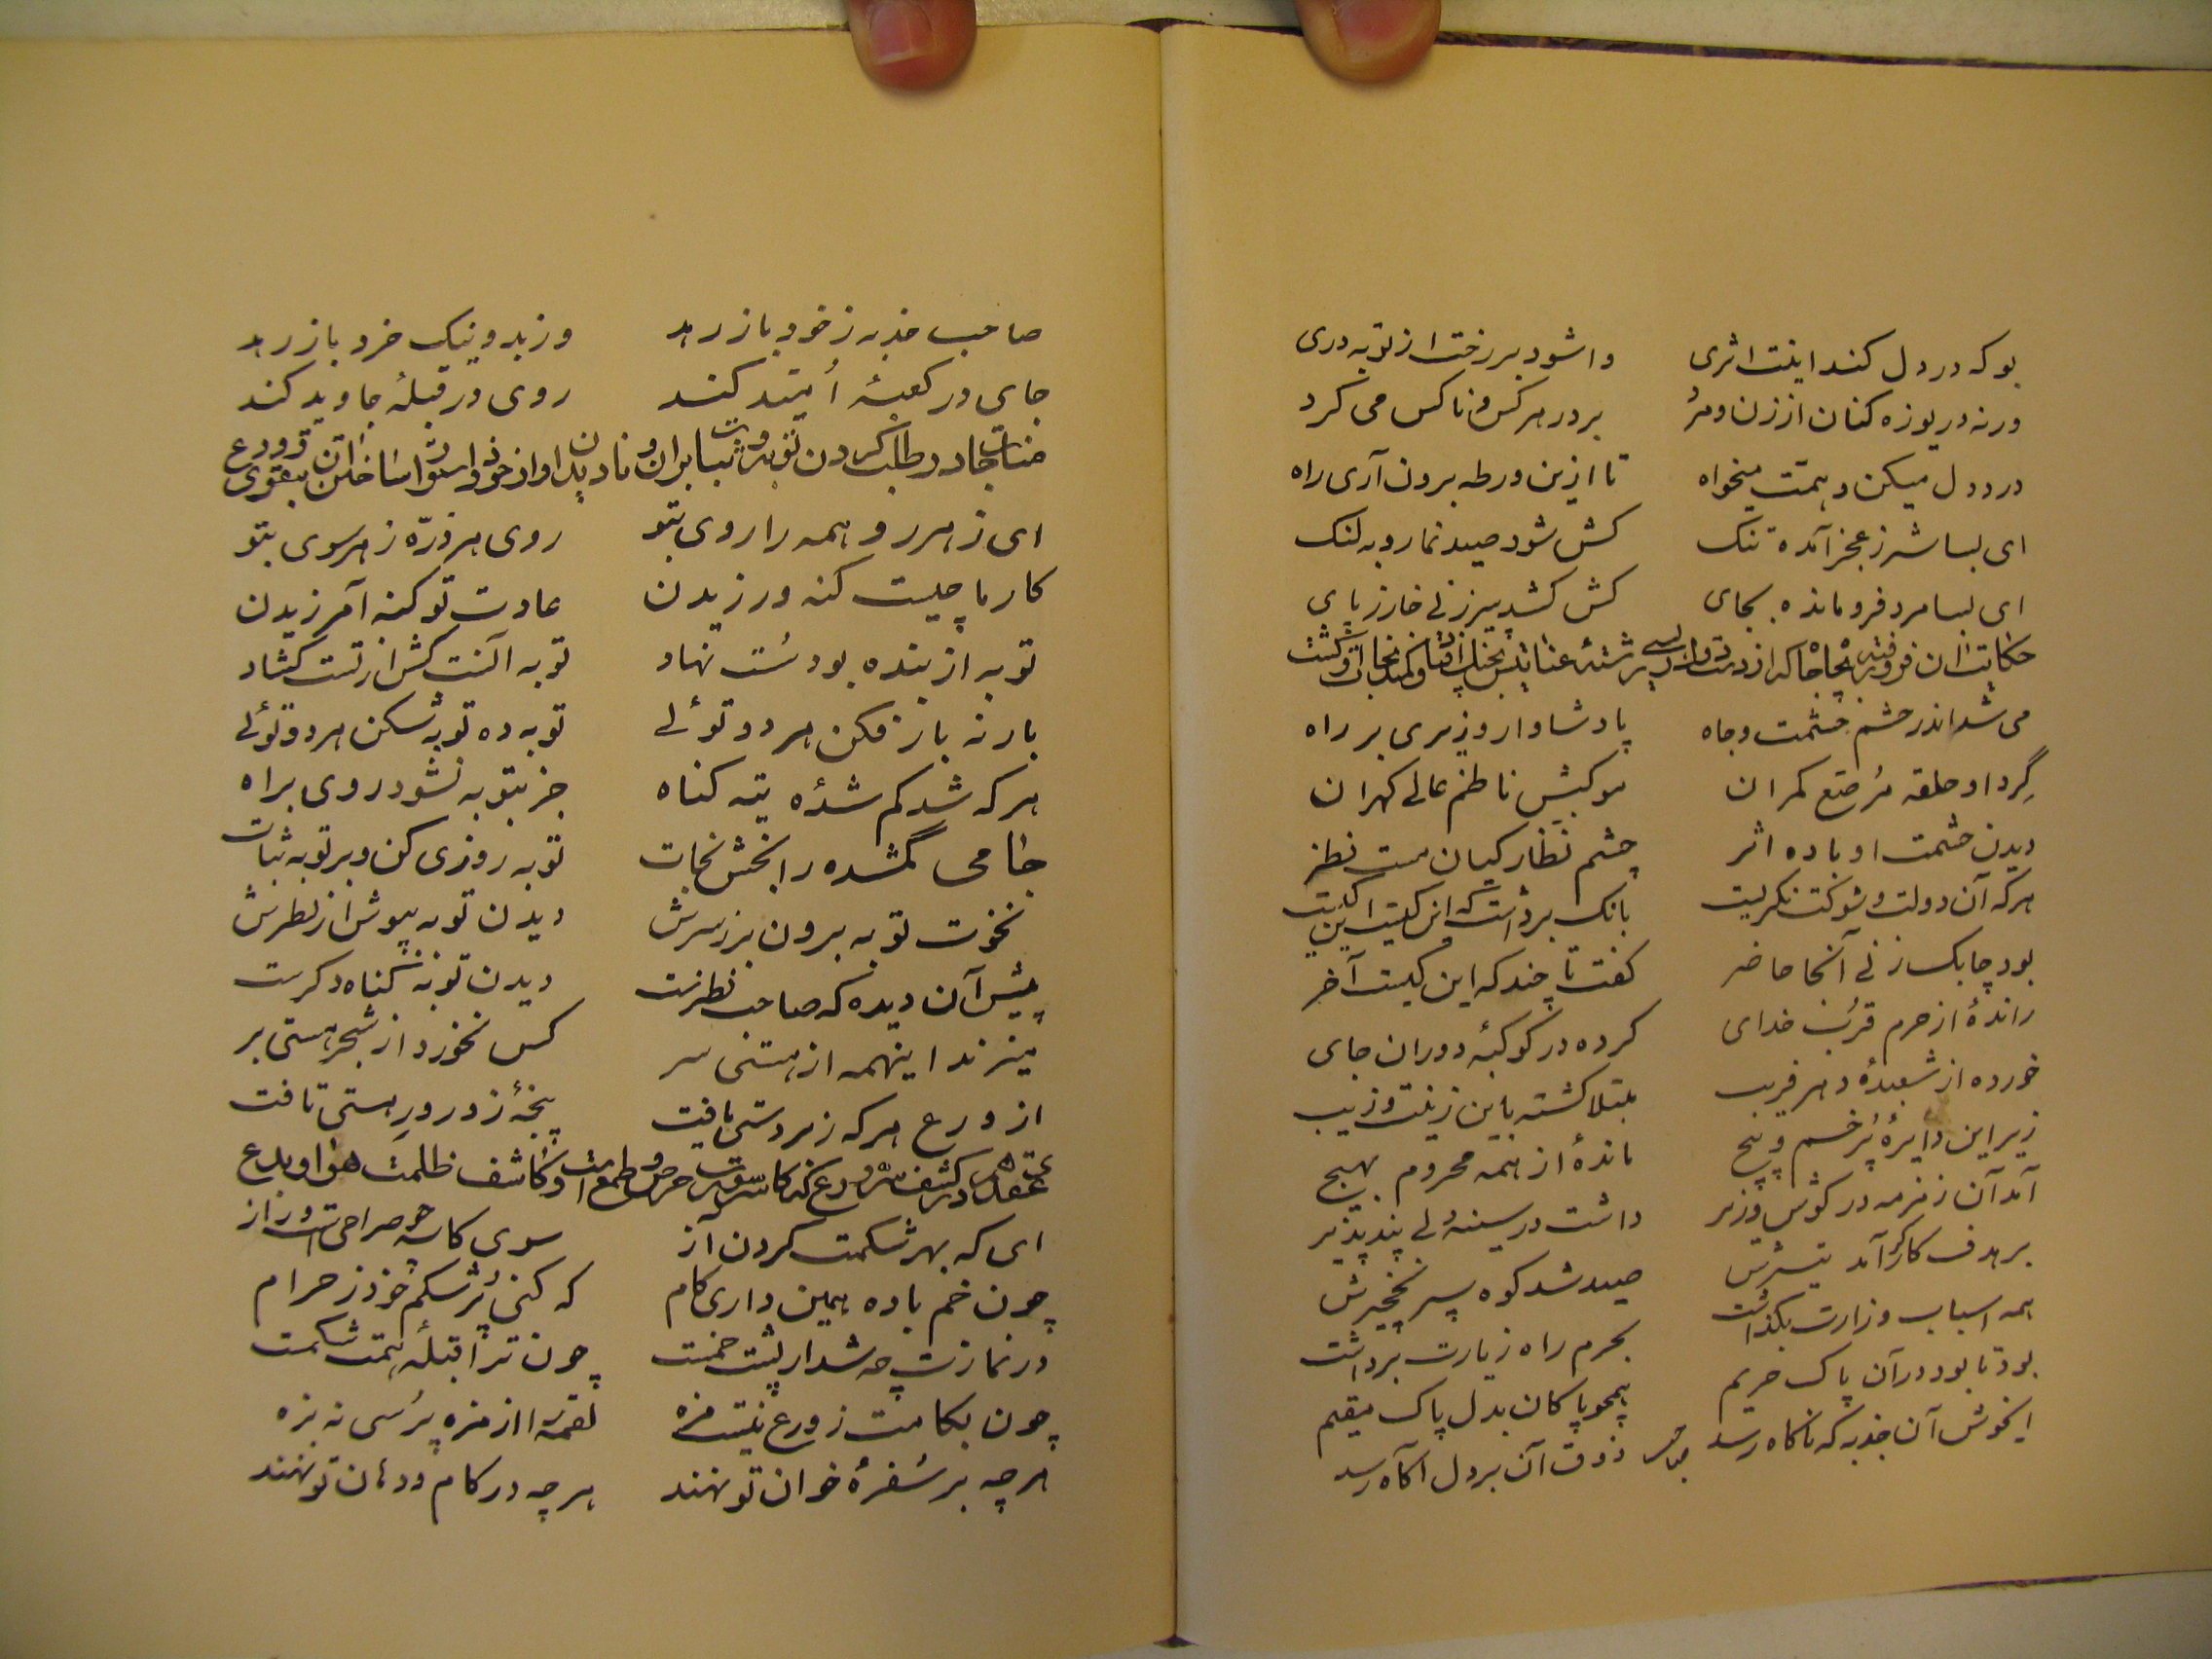 بو که در دل کند اینت اثری وا شود بر رخت از توبه دری
ورنه دریوزه کنان از زن و مرد بر در هر کس و ناکس می کرد
درد دل میکن و همّت میخواه تا ازین ورطه برون آری راه
ای بسا شیر ز عجز آمده تنک کش شود صید نما روبه لنک
ای بسا مرد فرو مانده بجای کش کشد پیر زنی خار ز پای
حکایت ان فرو رفته بچاه جاه که از
می شد اندر حشم حشمت و جاه پادشا وار وزیری بر راه
گرد او حلقه مرصّع کمران موکبش ناظم عالی کهران
دیدن حشمت او باده اثر چشم نظارکیان مست نظر
هر که آن دولت و شوکت نکریست بانک برداشت که این کیست این کیست
بود چابک زنی آنجا حاضر کفت تا چند که این کیست آخر
راندهٔ از حرم قرب خدای کرده در کوکبهٔ دوران جای
خورده از شعبدهٔ دهر فریب مبتلا کشته باین زینت و زیب
زیر این دایرهٔ پر خم و پیچ ماندهٔ از همه محروم بهیچ
آمد آن زمزمه در کوش وزیر داشت در سینه دلی پند پذیر
بر هدف کارکر آمد تیرش صید شد کوه سپر نخجیرش
همه اسباب وزارت بکذاشت بحرم راه زیارت برداشت
بود تا بود در آن پاک حریم همچو پاکان بدل پاک مقیم
ایخوش آن جذبه که ناکاه رسد ذوق آن بر دل آکاه رسد
صاحب
صاحب جذبه ز خود باز رهد وز بد و نیک خرد باز رهد
جای در کعبهٔ امّید کند روی در قبلهٔ جاوید کند
مناجات در طلب کردن توبه و ثبات بران و نادیدن او از خود و
ای ز هر رو همه را روی بتو روی هر ذرّه ز هر سوی بتو
کار ما چیست کنه ورزیدن عادت تو کنه آمرزیدن
توبه از بنده بود سست نهاد توبه آنست کش از تست کشاد
بار نه بار فکن هر دو توئی توبه ده توبه شکن هر دو توئی
هر که شد کم شدهٔ تیه کناه جز بتوبه نشود روی براه
جامی گمشده را بخش نجات توبه روزی کن و بر توبه ثبات
نخوت توبه برون بر ز سرش دیدن توبه بپوش از نظرش
پیش آن دیده که صاحب نظرست دیدن توبه کناه دکرست
میزند اینهمه از هستی سر کس نخورد از شجر هستی بر
از ورع هر که زبردستی یافت پنجهٔ زور ور هستی تافت
عقد در کشف سرّ ورع که کاسر سورت حرص و طمعست و کاشف ظلمت هوا و بدع
ای که بهر شکمت کردن آز سوی کاسه چو صراحیست دراز
چون خم باده همین داری کام که کنی پر شکم خود ز حرام
در نمازت چه شد ار پشت خمست چون ترا قبلهٔ همت شکمست
چون بکامت ز ورع نیست مزه لقمه را از مزه پرسی نه بزه
هر چه بر سفرهٔ خوان تو نهند هر چه در کام و دهان تو نهند